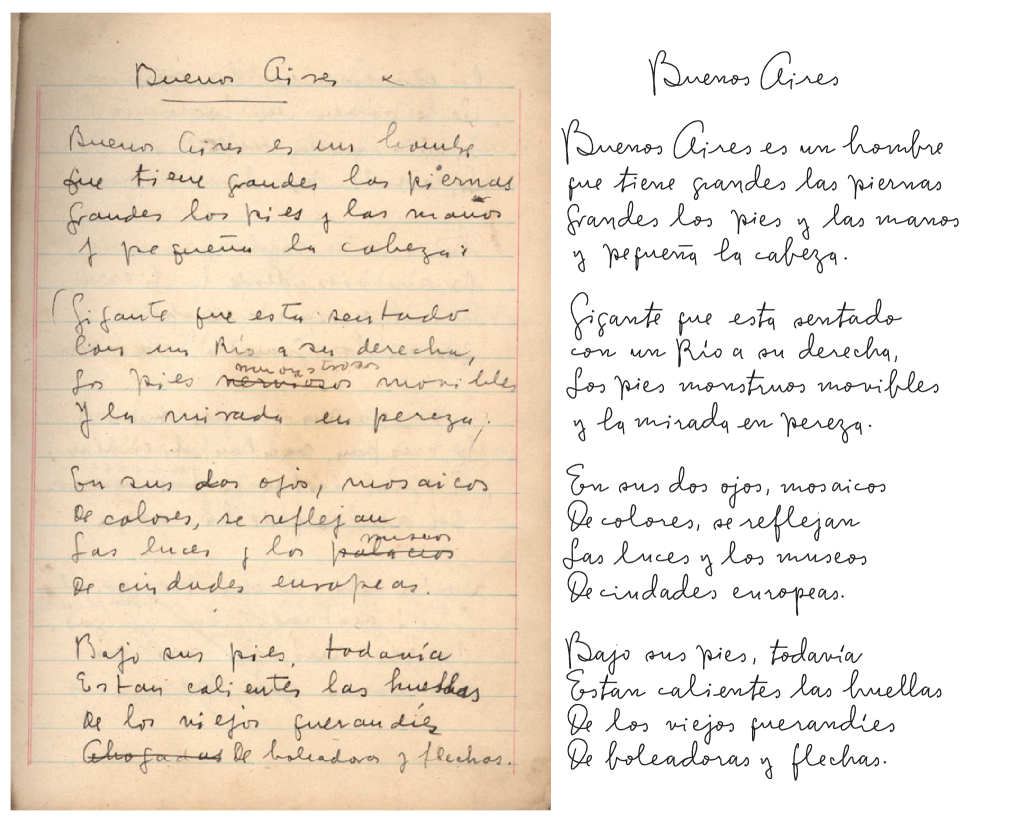 Buenos Aires x
Buenos Aires es un hombre
que tiene grandes las piernas
grandes los pies y las manos
y pequeña la cabeza:
(Gigante que esta sentado
Con un Río a su derecha,
monstrosos
Los pies nerviosos movibles
Y la mirada en pereza;
En sus dos ojos, mosaicos
De colores, se reflejan
museos
Las luces y los palacios
De ciudades europeas.
Bajo sus pies, todavía
Estan calientes las huellas
De los viejos querandíes
Ahogadas De boleadoras y flechas.
Buenos Aires
Buenos Aires es un hombre
que tiene grandes las piernas
Grandes los pies y las manos
y pequeña la cabeza.
Gigante que esta sentado
con un Río a su derecha,
Los pies monstruos movibles
y la mirada en pereza.
En sus dos ojos, mosaicos
De colores, se reflejan
Las luces y los museos
De ciudades europeas.
Bajo sus pies, todavía
Estan calientes las huellas
De los viejos querandíes
De boleadoras y flechas.